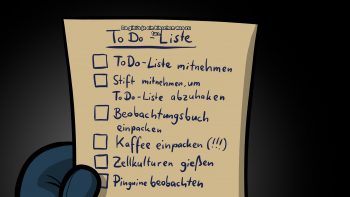 To Do - Liste
ToDo-Liste mitnehmen
Stift mitnehmen, um
ToDo-Liste abzuhaken
Beobachtungsbuch
einpacken
Kaffee einpacken (!!!)
Zellkulturen gießen
Pinguine beobachten